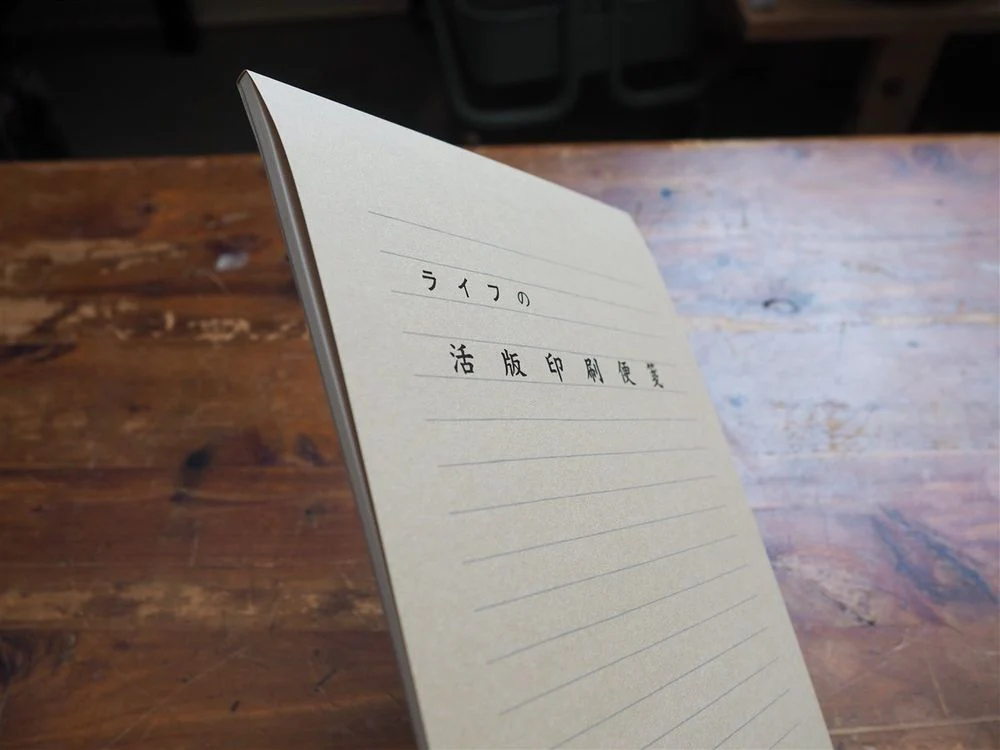 ライフの
活版印刷便箋